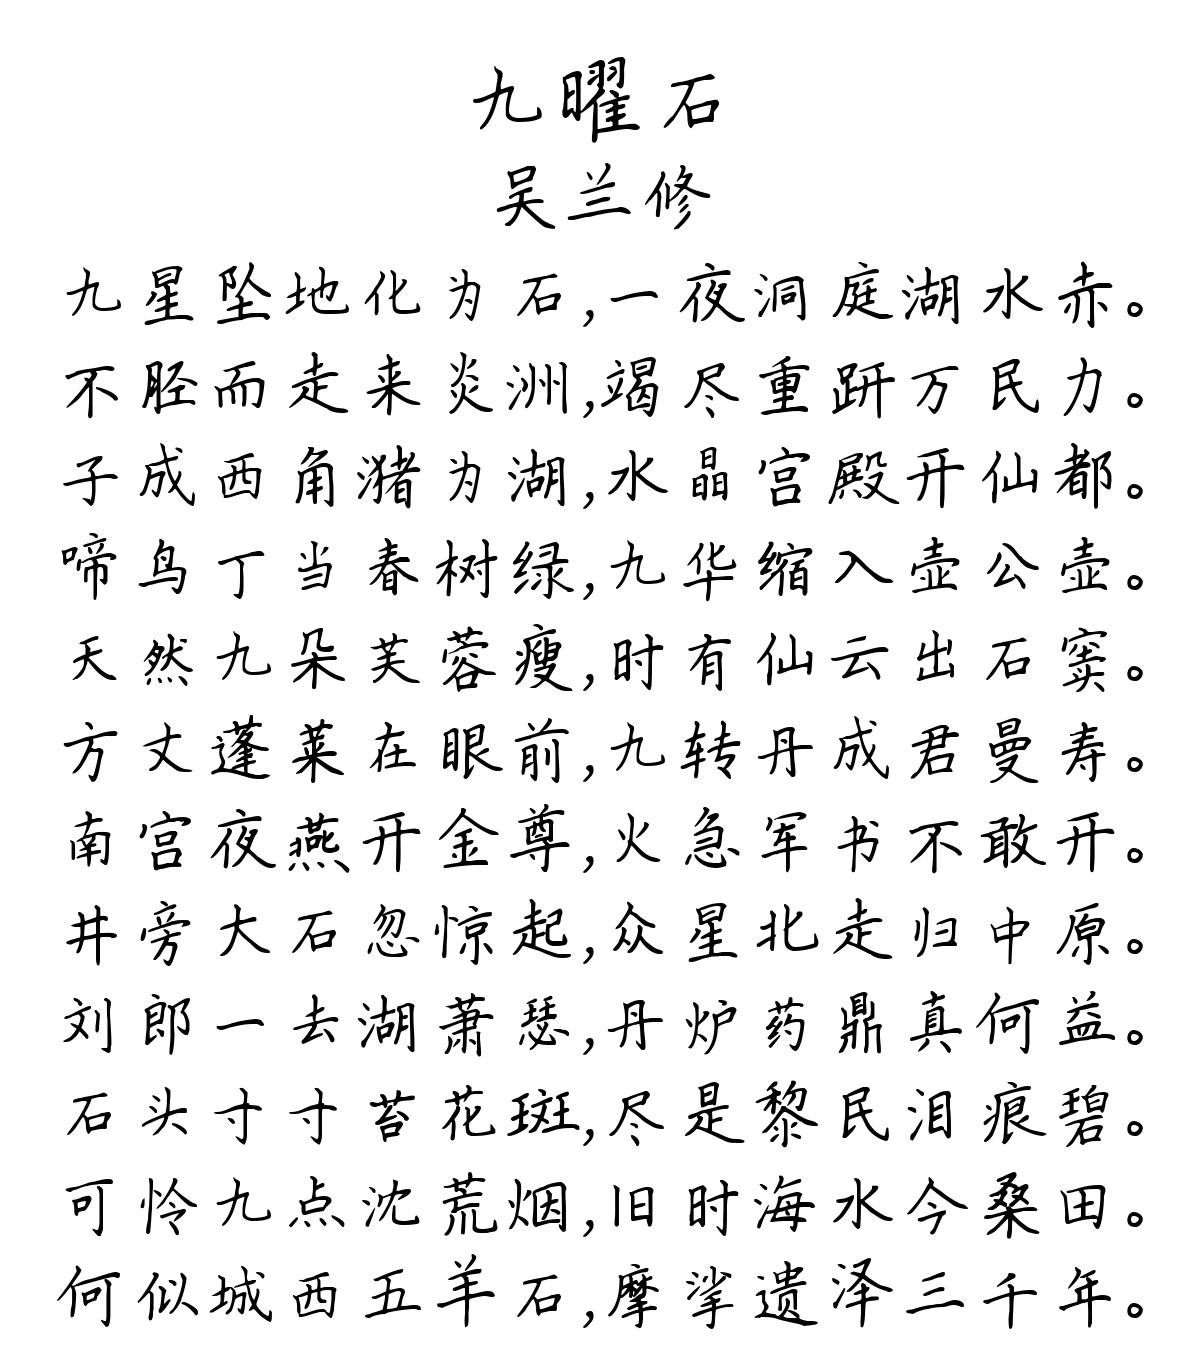 九曜石
吴兰修
九星坠地化为石,一夜洞庭湖水赤。
不胫而走来炎洲,竭尽重趼万民力。
子成西角潴为湖,水晶宫殿开仙都。
啼鸟丁当春树绿,九华缩入壶公壶。
天然九朵芙蓉瘦,时有仙云出石窦。
方丈蓬莱在眼前,九转丹成君曼寿。
南宫夜燕开金尊,火急军书不敢开。
井旁大石忽惊起,众星北走归中原。
刘郎一去湖萧瑟,丹炉药鼎真何益。
石头寸寸苔花斑,尽是黎民泪痕碧。
可怜九点沈荒烟,旧时海水今桑田。
何似城西五羊石,摩挲遗泽三千年。